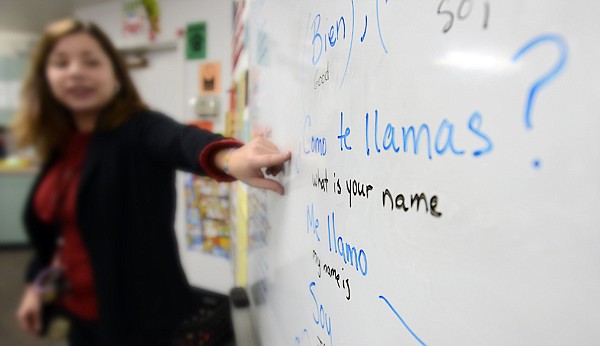 soy
(Bien),(
Good
Como te llamas?
what is your name
Me llamo
my name is
Soy